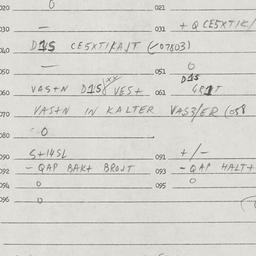 020 0 021
030 — 031 + Q CE5XTIK/
040 D1S CE5XTIKA)T (✓07803)
050 — 051 0
060 VAS+N D1S VES+ 061 D1S GR1T
070 VAS+N IN KALTER VAS3/ER (058
080 0
090 S+14SL 091 +/-
092 - QAP BAK+ BROJT 093 - QAP HALT+
094 0 095 0
096 0